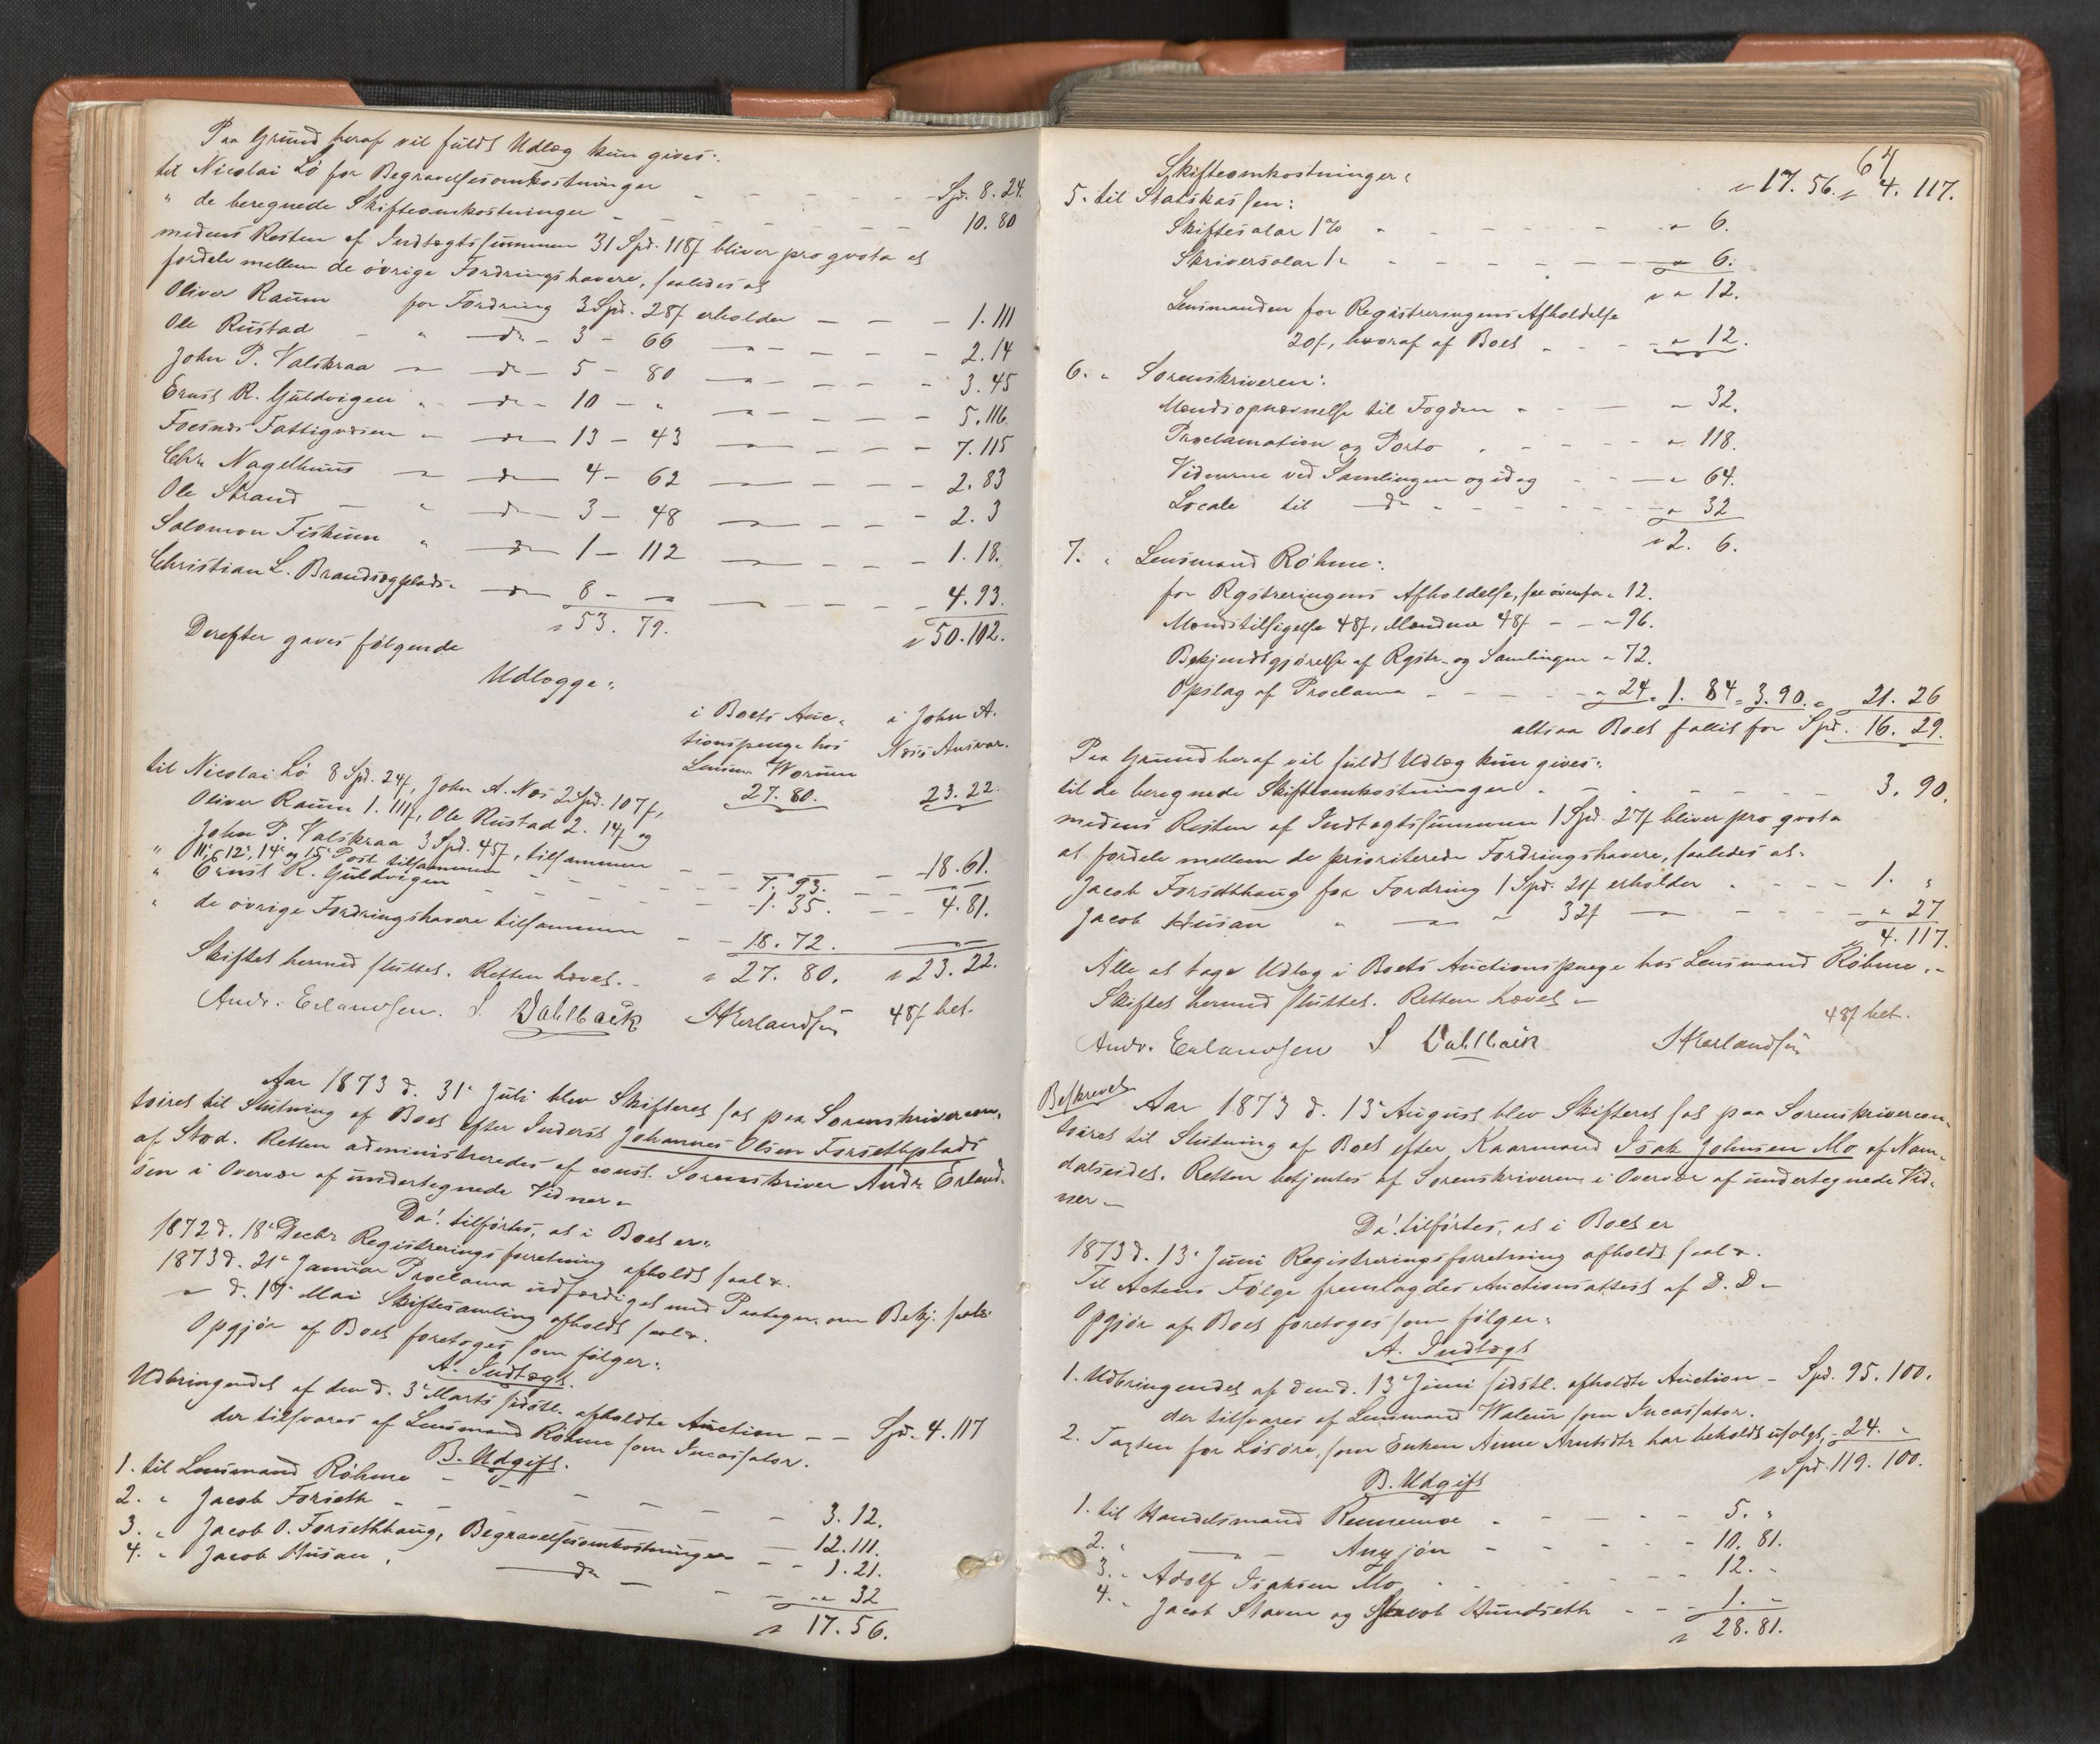 Paa Grund heraf vil fuldt Udlæg kun gives:
til Nicolai Lö for Begravelsesomkostninger - - - - Spd. 8. 24.
" de beregnede Skifteomkostninger - - - - 10. 80
medens Resten af Indtægtssummen 31 Spd. 118 s bliver pro qvota at
fordele mellem de övrige Fordringshavere, saaledes at
Oliver Raum for Fordring 3 Spd. 28 s erholder - - - 1. 111
Ole Rustad - " - do - 3 - 66 - - - 2. 14
John P. Valskraa - do - 5 - 80 - - - 3. 45
Ernst R. Guldvigen " - do - 10 - " - - - 5. 116.
Foesnæs Fattigvæsen - do - 13 - 43 - - - 7. 115
Chr. Nagelhuus - do - 4 - 62 - - - 2. 83
Ole Strand - " - do - 3 - 48 - - - 2. 3
Salomon Fiskum " - do - 1 - 112 - - - 1. 18.
Christian L. Brandsegplads " - do - 8 - " - - - 4. 93.
" 53. 79. " 50. 102.
Derefter gaves følgende
Udlægge:
i Boets Auc- i John A.
tionspenge hos Næss Ansvar.
Lensm. Worum
27. 80. 23. 22.
til Nicolai Lö 8 Spd. 24 s, John A. Næs 2 Spd. 107 s,
Oliver Raum 1. 111 s, Ole Rustad 2. 14 s og
John P. Valskraa 3 Spd. 45 s, tilsammen - - - 18. 61.
" 11, 12, 14 og 15 Post tilsammen - - 7. 93.
" Ernst R. Guldvigen - - - 1. 35. - - 4. 81.
" de övrige Fordringshavere tilsammen - - 18. 72.
" 27. 80. " 23. 22.
Skiftet hermed sluttet. Retten hævet. -
Andr. Erlandsen. S. Dahlback Erlandsen 48 s bet.
Aar 1873 d. 31 Juli blev Skifteret sat paa Sorenskrivercon-
toiret til Slutning af Boet efter Inderst Johannes Olsen Forsethplads
af Stod. Retten administreredes af const. Sorenskriver Andr. Erland-
sen i Overvær af undertegnede Vidner -
Da! tilførtes, at i Boet er:
1872 d. 18 Decbr Registreringsforretning afholdt saal.
1873 d. 21 Januar Proclama udfærdiget med Paategn. om Bekj. saal.
" d. 19 Mai Skiftesamling afholdt saal.
Opgjör af Boet foretoges som følger:
A. Indtægt.
Udbringendet af den d. 3 Marts sidstl. afholdte Auction - - Spd. 4. 117
der tilsvares af Lensmand Röhme som Incassator.
B. Udgift.
1. til Lensmand Röhme - - - - 3. 12.
2. " Jacob Forseth - - - - 12. 111.
3. " Jacob O. Forsethhaug, Begravelsesomkostninger - - 1. 21.
4. " Jacob Husan, do - - - " 32
" 17. 56.
64
Skifteomkostninger: " 17. 56. " 4. 117.
5. til Statskassen:
Skiftesalar 1 % " - - - - " 6.
Skriversalar 1 " - - - - " 6.
" " 12.
Lensmanden for Registreringens Afholdelse
20 s, hvoraf af Boet - - - " 12.
6. " Sorenskriveren:
Mændsopnævnelse til Fogden - - - " 32.
Proclamation og Porto - - - " 118.
Vidnerne ved Samlingen og idag - - " 64.
Locale til do - - - " 32
" 2. 6.
7. " Lensmand Röhme:
for Rgstreringens Afholdelse, see ovenfor " 12.
Mændstilsigelse 48 s, Mændene 48 s - - " 96.
Bekjendtgjörelse af Rgstr. og Samlingen " 72.
Opslag af Proclama - - - " 24. " 1. 84 " 3. 90. " 21. 26
altsaa Boet fallit for Spd. 16. 29.
Paa Grund heraf vil fuldt Udlæg kun gives:
til de beregnede Skifteomkostninger - - - 3. 90.
medens Resten af Indtægtssummen 1 Spd. 27 s bliver pro qvota
at fordele mellem de prioriterede Fordringshavere, saaledes at
Jacob Forsethhaug for Fordring 1 Spd. 21 s erholder - - - 1. "
Jacob Husan " - " 32 s - - - " 27
" 4. 117.
Alle at tage Udlæg i Boets Auctionspenge hos Lensmand Röhme. -
Skiftet hermed sluttet. Retten hævet -
48 s bet.
Andr. Erlandsen S. Dahlback Erlandsen
Beskrevet
Aar 1873 d. 13 August blev Skifteret sat paa Sorenskrivercon-
toiret til Slutning af Boet efter Kaarmand Isak Johnsen Mo af Nam-
dalseidet. Retten betjentes af Sorenskriveren i Overvær af undertegnede Vid-
ner -
Da! tilførtes, at i Boet er
1873 d. 13 Juni Registreringsforretning afholdt saal.
Til Actens Følge fremlagdes Auctionsattest af D. D -
Opgjör af Boet foretoges som følger:
A. Indtægt
1. Udbringendet af den d. 13 Juni sidstl. afholdte Auction - Spd. 95. 100.
der tilsvares af Lensmand Waleur som Incassator.
2. Taxten for Løsøre, som Enken Anne Arntsdtr har beholdt usolgt, - 24. "
" Spd. 119. 100.
B. Udgift
1. til Handelsmand Rennemoe - - - 5. "
2. " - " - Anzjön - - - 10. 81.
3. " Adolf Isaksen Mo - - - 12. "
4. " Jacob Staven og Jacob Hundseth - - - 1. "
" 28. 81.